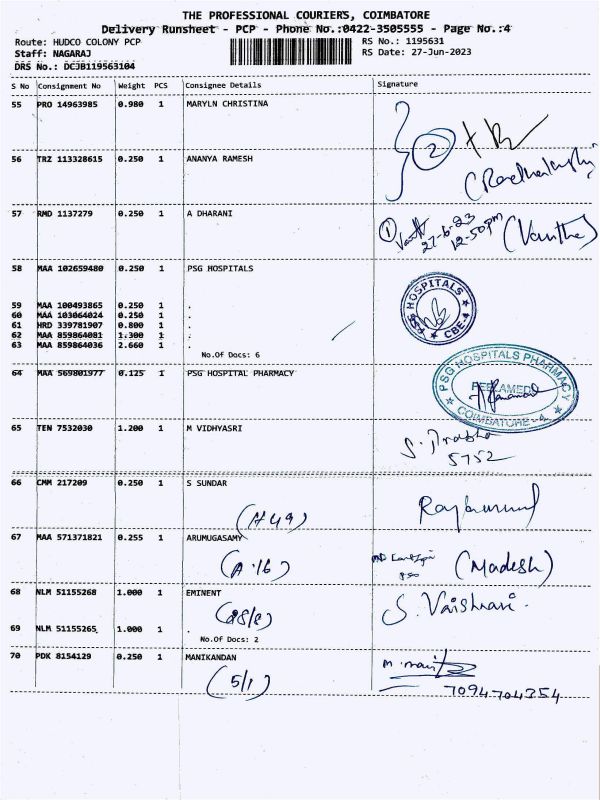 THE PROFESSIONAL COURIERS, COIMBATORE
Delivery Runsheet - PCP - Phone No.:0422-3505555 - Page No.:4
Route: HUDCO COLONY PCP RS No.: 1195631
Staff: NAGARAJ RS Date: 27-Jun-2023
DRS No.: DCJB119563104
S No Consignment No Weight PCS Consignee Details Signature
55 PRO 14963985 0.980 1 MARYLN CHRISTINA
2
56 TRZ 113328615 0.250 1 ANANYA RAMESH
57 RMD 1137279 0.250 1 A DHARANI
1 27-6-23
12-50pm
58 MAA 102659480 0.250 1 PSG HOSPITALS
PSG HOSPITALS
CBE-4
59 MAA 100493865 0.250 1 .
60 MAA 103064024 0.250 1 .
61 HRD 339781907 0.800 1 .
62 MAA 859864081 1.300 1 .
63 MAA 859864036 2.660 1 .
No.Of Docs: 6
64 MAA 569801977 0.125 1 PSG HOSPITAL PHARMACY
PSG HOSPITALS PHARMACY
PEELAMEDU
COIMBATORE - 4.
65 TEN 7532030 1.200 1 M VIDHYASRI
S. Prabha
5752
66 CMM 217209 0.250 1 S SUNDAR
(A 49)
67 MAA 571371821 0.255 1 ARUMUGASAMY
(A-16) (Madesh)
68 NLM 51155268 1.000 1 EMINENT
(28/8) S. Vaishnavi.
69 NLM 51155265 1.000 1 .
No.Of Docs: 2
70 PDK 8154129 0.250 1 MANIKANDAN
(5/1)
7094704354